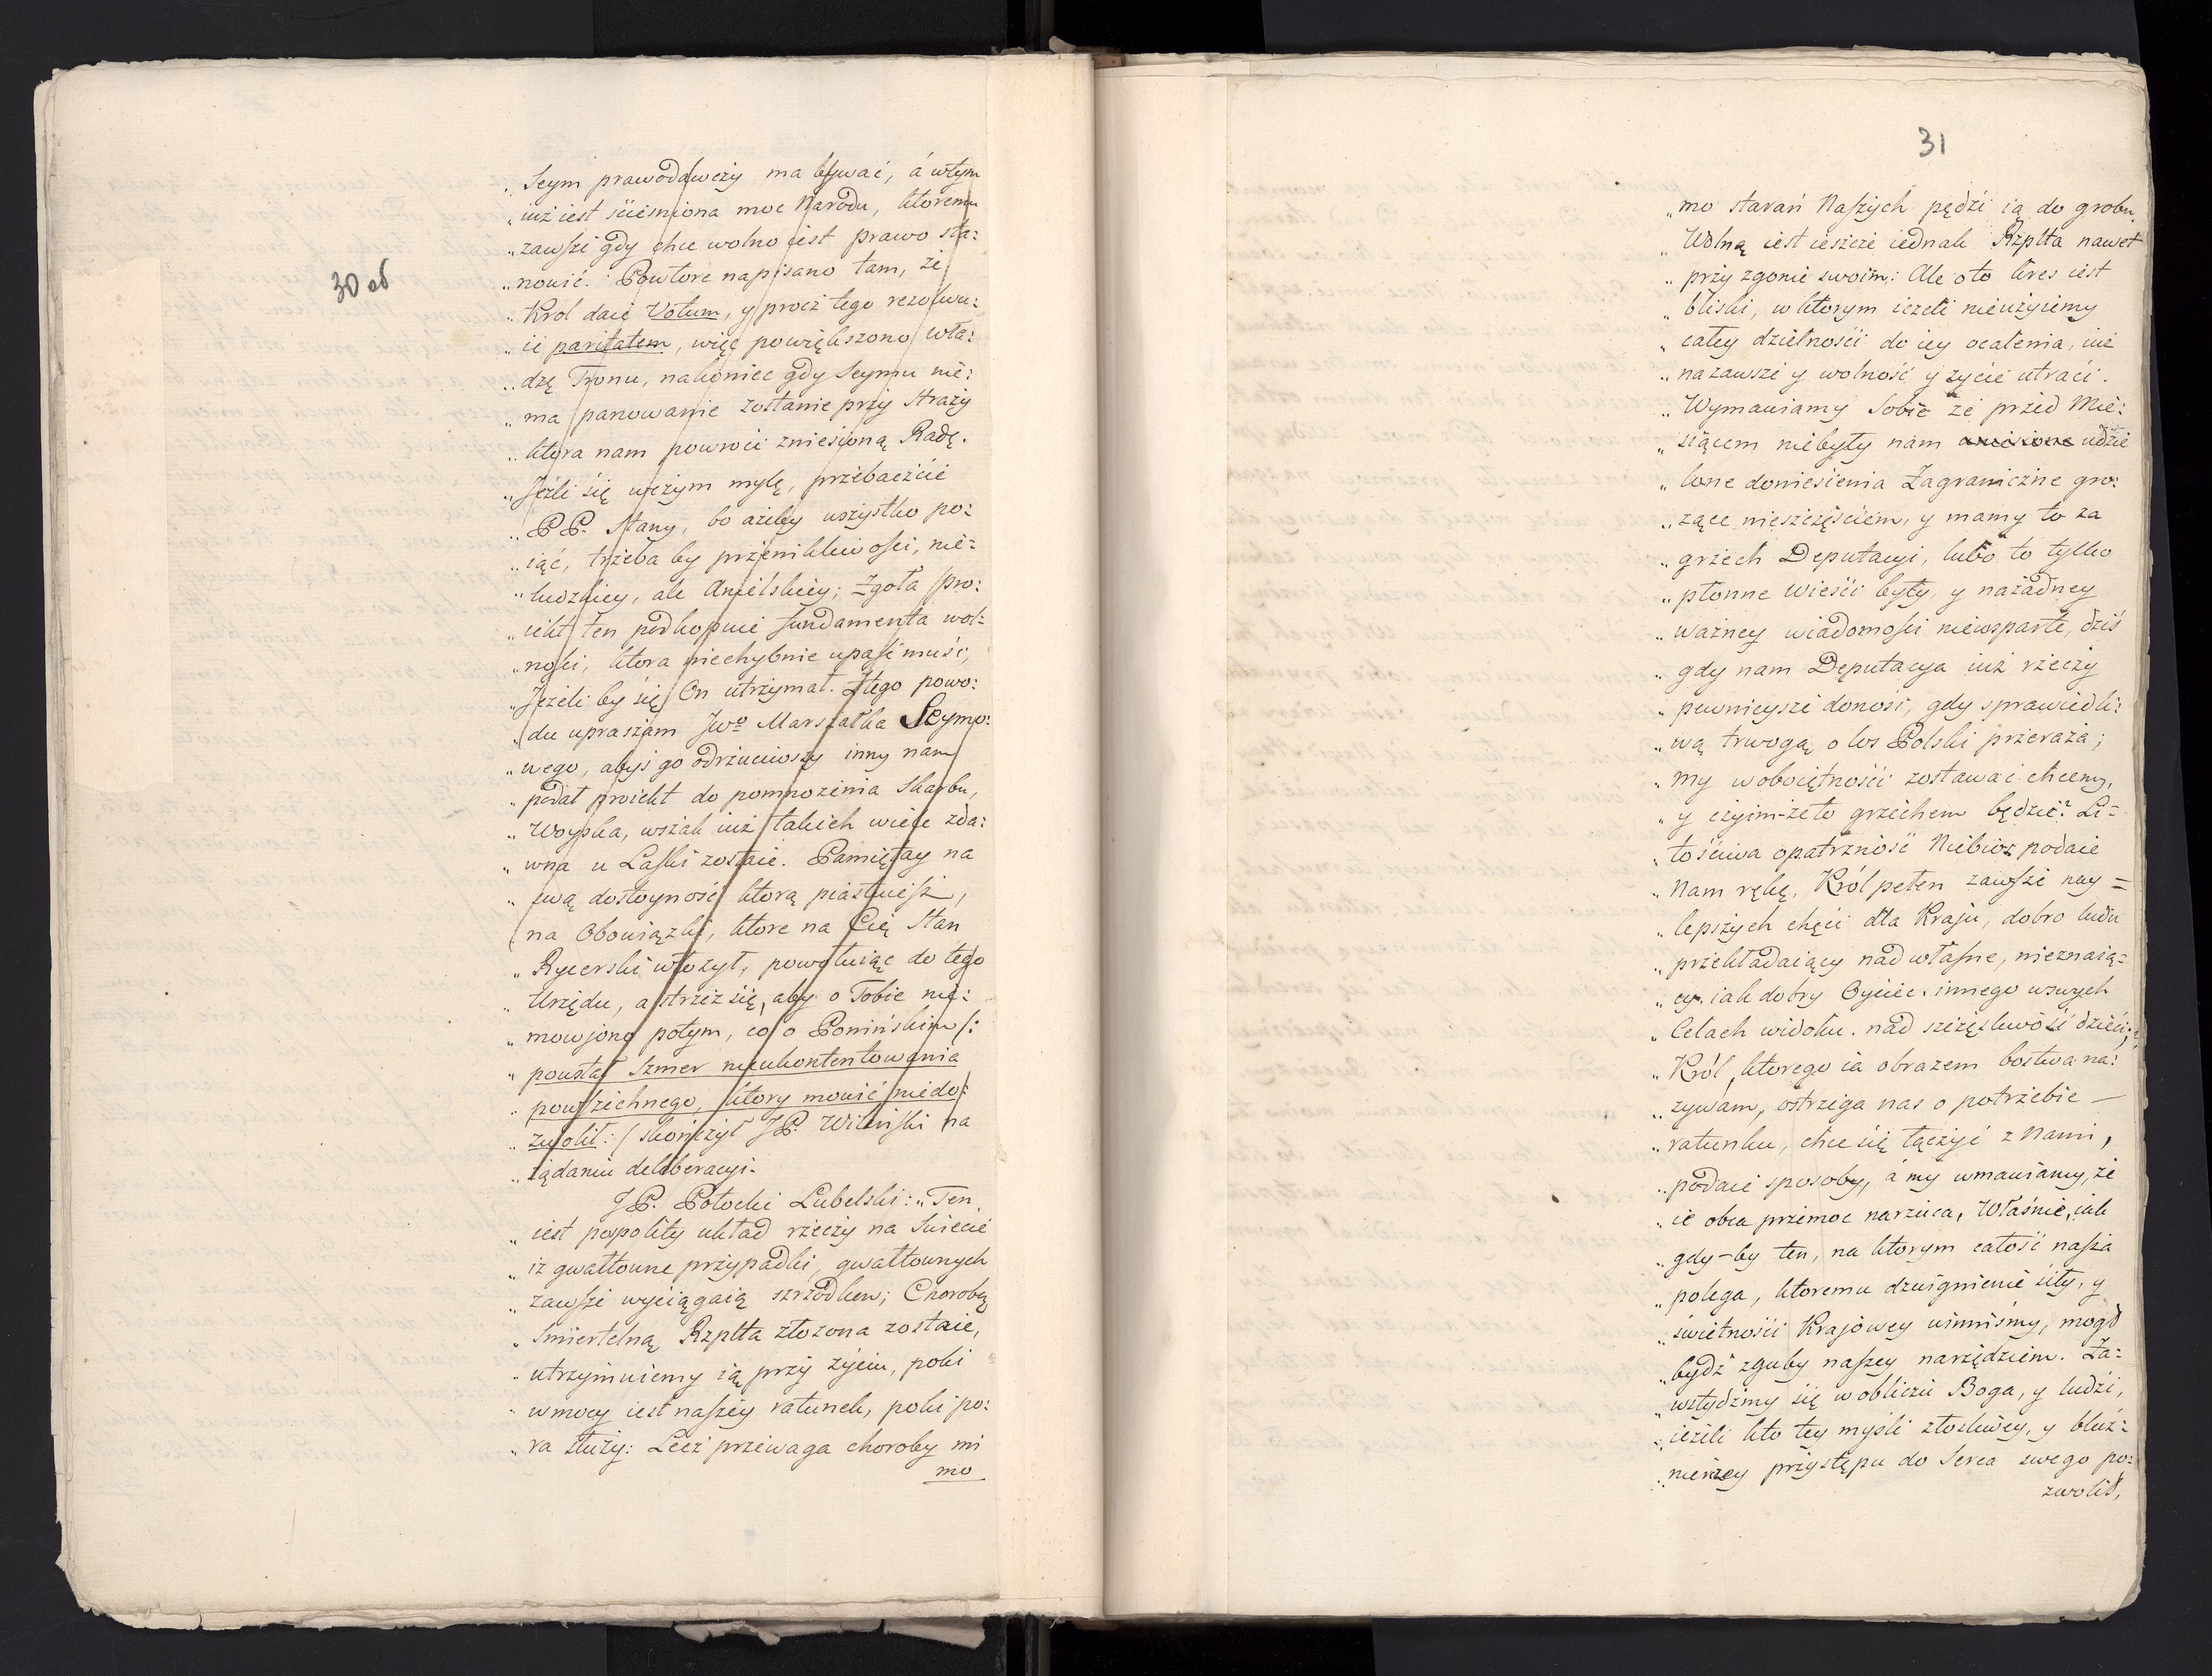 30 об
„ Seym prawodawczy ma bywać, á wtym
„ iuż iest scieśniona moc Narodu, ktoremu
„ zawſze gdy chce wolno iest prawo sta:
„ nowić. Powtore napisano tam, że
„ Krol daie Votum, y procz tego rezolwu:
„ ie paritatem, więc powiększono wła:
„ dzę Tronu, nakoniec gdy Seymu nie:
„ ma panowanie zostanie przy Straży
„ ktora nam powroci zniesioną Radę.
„ Jeźli się wczym mylę, przebaczcie
„ PP. Stany, bo ażeby wszystko po:
„ iąć, trzeba by przenikliwości, nie:
„ ludzkiey, ale Anielskiey; Zgoła pro:
„ iekt ten podkopuie fundamenta wol:
„ ności, ktora niechybnie upaść muśi,
„ Jeżeli by się On utrzymał. Ztego powo:
„ du upraszam JWo Marszałka Seymo:
„ wego, abyś go odrzuciwszy inny nam
„ podał proiekt do pomnożenia Skarbu,
„ Woyska, wszak iuż takich wiele zda:
„ wna u Laski zostaie. Pamiętay na
„ swą dostoyność ktorą piastuieſz,
„ na Obowiązki, ktore na Cię Stan
„ Rycerski włożył, powołuiąc do tego
„ Urzędu, a strzeż się, aby o Tobie nie:
„ mowiono potym, co o Ponińskim /:
„ powstał szmer nieukontentowania
„ powſzechnego, ktory mowić niedo:
„ zwolił: / skończył JP. Wiliński na
„ żądaniu deliberacyi.
JP. Potocki Lubelski: „ Ten
„ iest pospolity układ rzeczy na Swiecie
„ iż gwałtowne przypadki, gwałtownych
„ zawſze wyciągaią szrzodkow; Chorobą
„ Smiertelną Rzplta złożona zostaie,
„ utrzymuiemy ią przy życiu, poki
„ wmocy iest naſzey ratunek, poki po:
„ ra służy: Lecz przewaga choroby mi
mo
31
„ mo starań Naſzych pędzi ią do grobu.
„ Wolną iest ieszcze iednak Rzplta nawet
„ przy zgonie swoim: Ale oto kres iest
„ bliski, w ktorym ieżeli nieużyiemy
„ całey dzielności do iey ocalenia, iuż
„ nazawsze y wolność y życie utraci.
„ Wymawiamy Sobie że przed Mie:
„ siącem niebyły nam udzie
„ lone doniesienia Zagraniczne gro:
„ żące nieszczęściem, y mamy to za
„ grzech Deputacyi, lubo to tylko
„ płonne wieści były, y nażadney
„ ważney wiadomości niewsparte, dziś
„ gdy nam Deputacya iuż rzeczy
„ pewnieysze donosi, gdy sprawiedli:
„ wą trwogą o los Polski przeraża;
„ my wobojętności zostawać chcemy,
„ y czyim-że to grzechem będzie? Li=
„ tościwa opatrzność Niebios podaie
„ Nam rękę, Król pełen zawſze nay=
„ lepszych chęci dla Kraju, dobro ludu
„ przekładaiący nad własne, nieznaią=
„ cy. iak dobry Oyciec. innego wswych
„ Celach widoku. nad szczęśliwość dzieci;
„ Król, ktorego ia obrazem bostwa na:
„ zywam, ostrzega nas o potrzebie —
„ ratunku, chce się łączyć z Nami,
„ podaie sposoby, á my wmawiamy, że
„ ie obca przemoc narzuca, Właśnie, iak
„ gdy-by ten, na ktorym całość naſza
„ polega, ktoremu dzwignienie siły, y
„ świetności Krajowey winniśmy, mogł
„ bydź zguby naſzey narzędziem. Za:
„ wstydźmy się w obliczu Boga, y ludzi,
„ ieżeli kto tey myśli złośliwey, y bluź:
„ nierzey przystępu do Serca swego po:
zwolił,